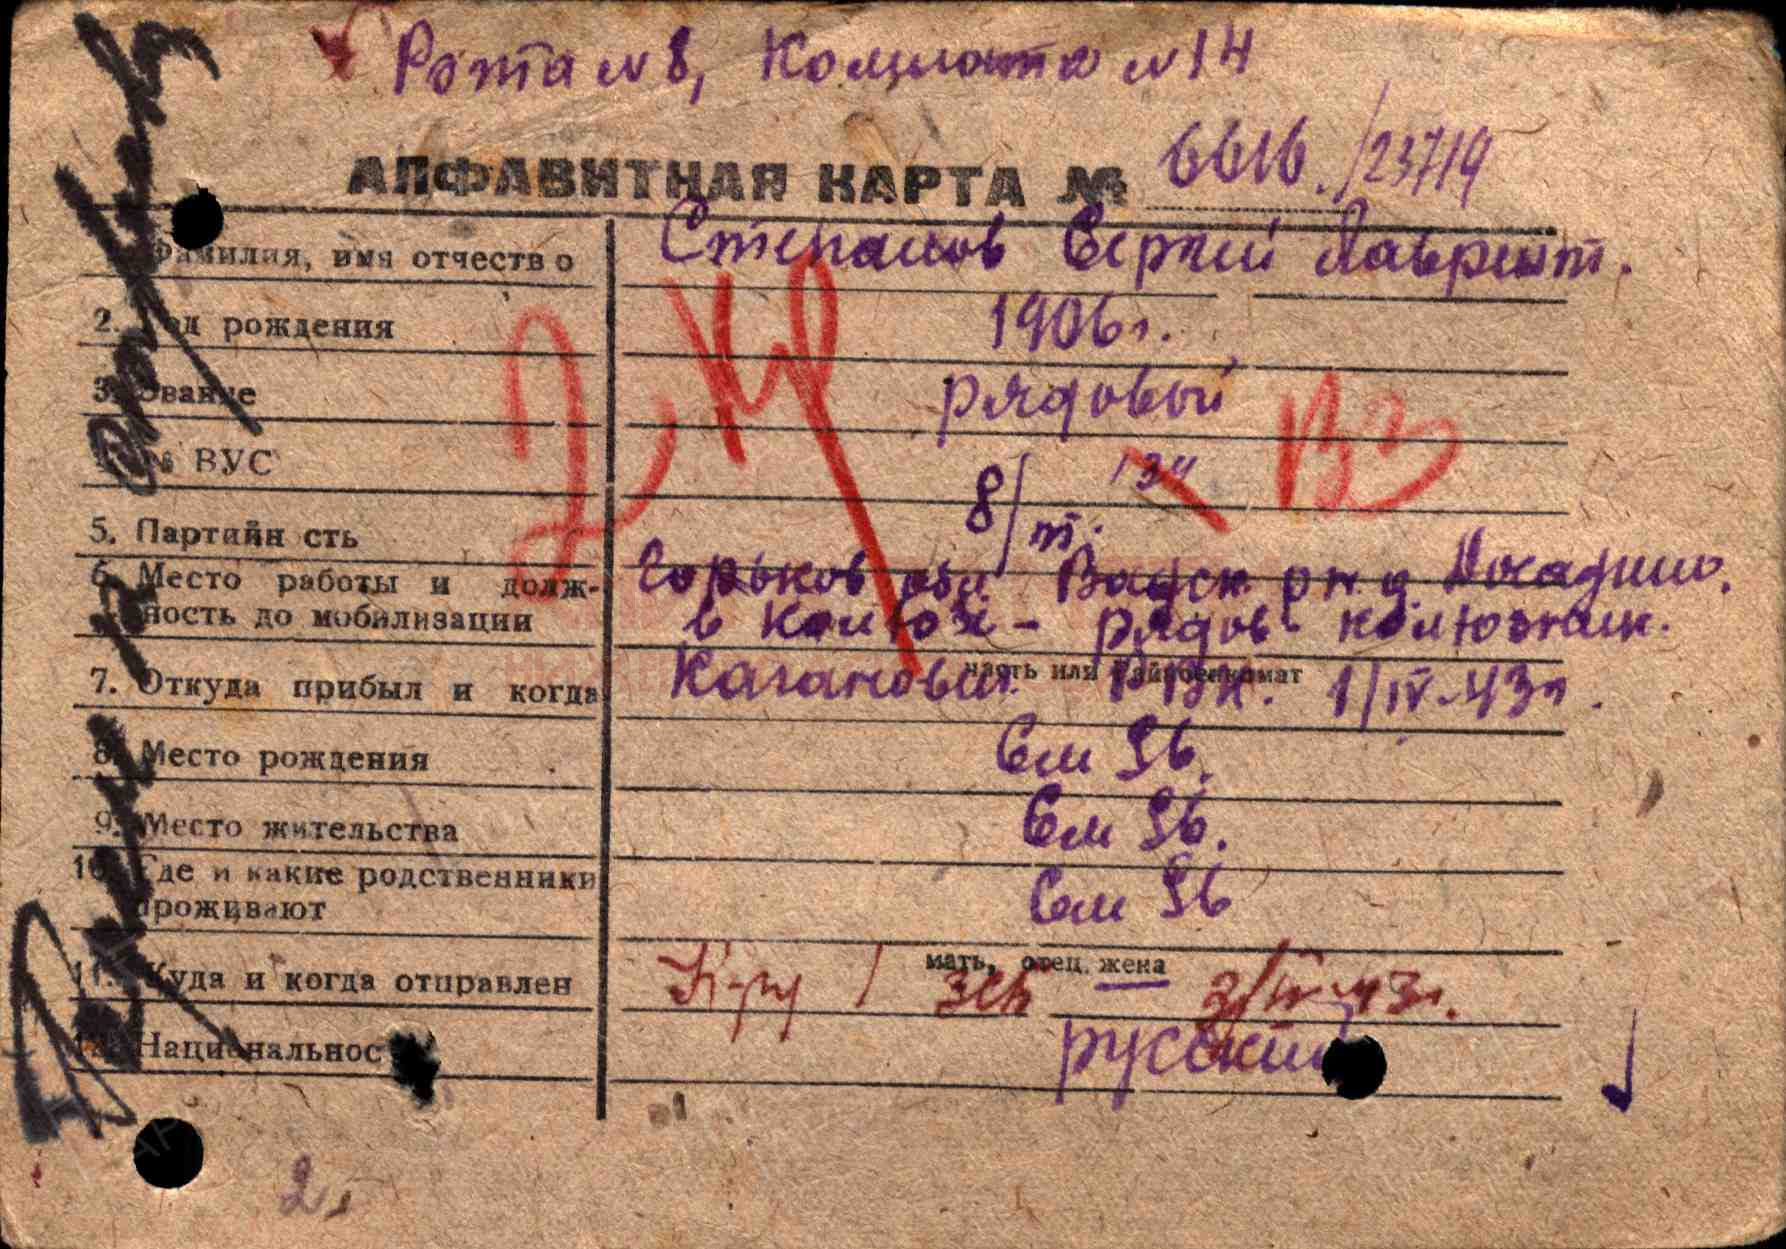 Рота №8, Комната №14
АЛФАВИТНАЯ КАРТА № 6616./23719
Фамилия, имя отчество Степанов Сергей Лаврент.
2. Год рождения 1906г.
3. Звание рядовой
№ ВУС 134
5. Партийн сть 8/п.
6. Место работы и долж-
ность до мобилизации
Горьков обл Вадск р-н д
в колхоз - рядов. колхозник.
7. Откуда прибыл и когда Каганович. РВК. 1/IV-43г.
часть или райвоенкомат
8. Место рождения См §6.
9. Место жительства См §6.
10. Где и какие родственники
проживают См §6
мать, отец, жена
11. Куда и когда отправлен 2/IV-43г.
12. Национальнос русский
ВЗ
2